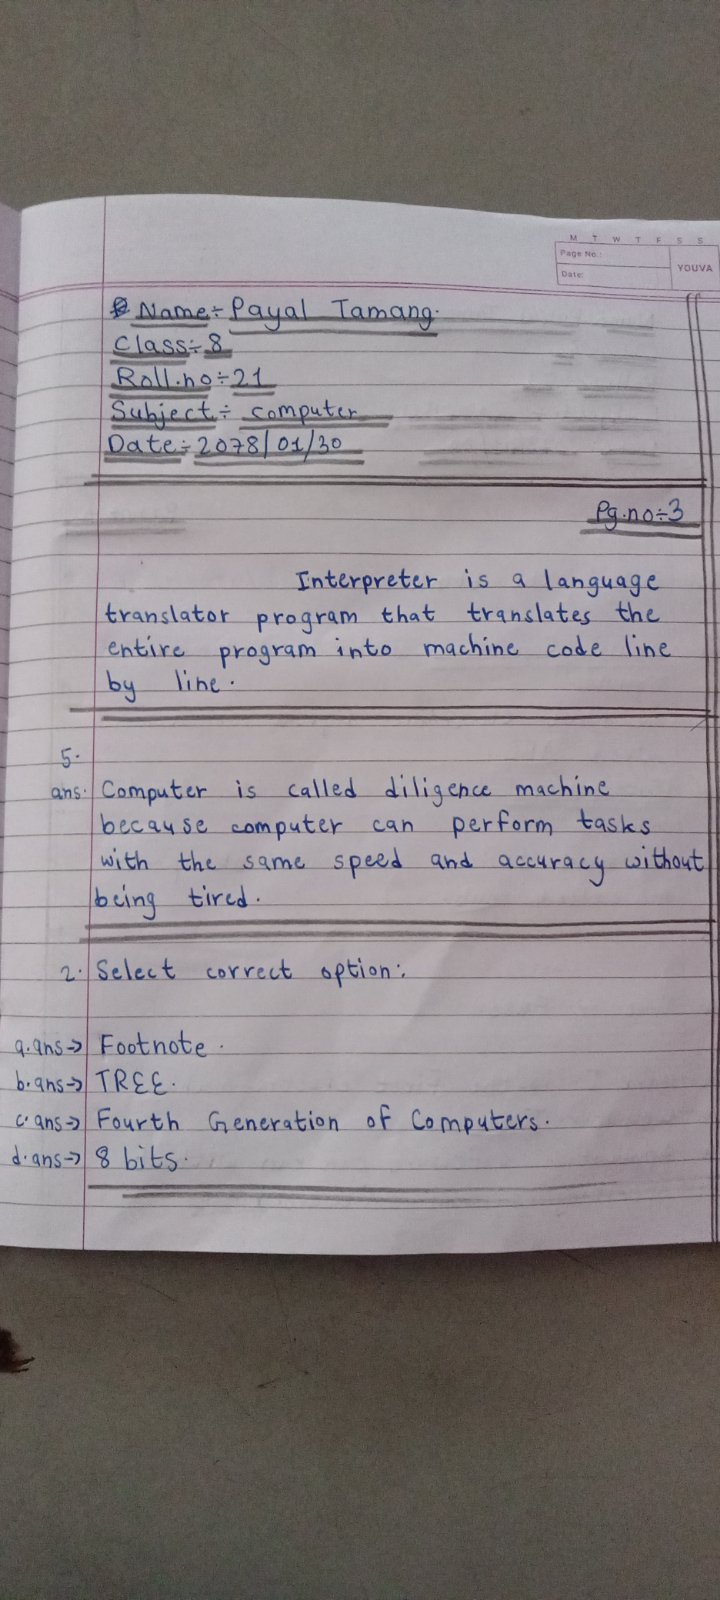 M T W T F S S
Page No.:
YOUVA
Date:
Name÷ Payal Tamang.
Class÷ 8
Roll.no÷ 21
Subject÷ computer
Date÷ 2078/01/30
Pg.no÷3
Interpreter is a language
translator program that translates the
entire program into machine code line
by line.
5.
ans. Computer is called diligence machine
because computer can perform tasks
with the same speed and accuracy without
being tired.
2. Select correct option:
a.ans→ Footnote.
b.ans→ TREE.
c.ans→ Fourth Generation of Computers.
d.ans→ 8 bits.